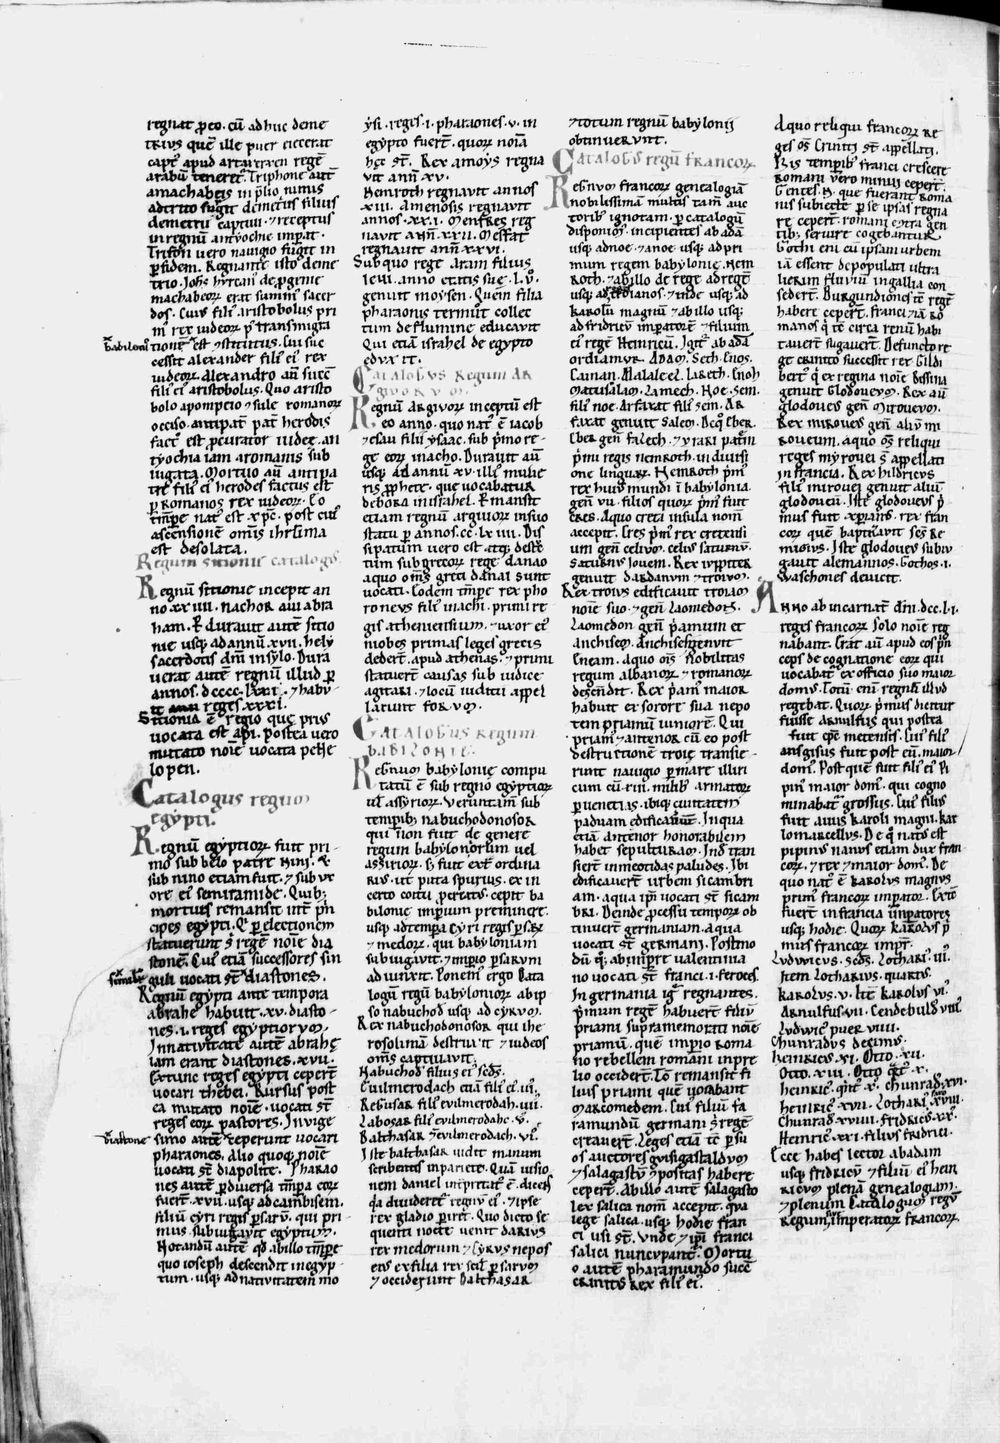 regnat p̱ eo. cū adhuc deme
trius quē ille puer eiecerat
capt᷒ apud artaxerxen regē
arabū teneret̄. Triphone aut̄
a machabeis in p̄lio nimis
adtrito fugit demetrius filius
demetrii captiui. ⁊ receptus
in regnū antyochie imperat.
Trifon vero nauigio fugit in
p̱fidem. Regnante isto deme
trio. Joh̄s hyrcan᷒ de ꝑgenie
machabeoꝝ erat summ᷒ sacer
dos. Cuius fili᷒ aristobolus pri
m᷒ rex iudeoꝝ p᷒ transmigra
babiloniē
tionē est ⁊stitutus. Cui suc
cessit alexander fili᷒ ei᷒ rex
iudeoꝝ. Alexandro aū succē
fili᷒ ei᷒ aristobolus. Quo aristo
bolo a pompeio ⁊sule romanoꝝ
occiso. antipat̄ pat̄ herodis
fact᷒ est ꝓcurator iudee. an
tyochia iam a romanis sub
iugata. Mortuo aū antipa
tre fili᷒ ei᷒ herodes factus est
p̱ romanos rex iudeoꝝ. Eo
tēpr̄e nat᷒ est xp̄c. post cui᷒
ascensionē om̄is ihrl̄ima
est desolata.
Regum sitionie catalog᷒
Regnū sitionie incepit an
no xxiiii. nachor aui abra
ham. Et durauit autē sitio
nie usq; ad annū. xvii. hely
sacerdotis dn̄i in sylo. Dura
uerat autē regnū illud p̱
annos. dcccc. lxxi. ⁊ habu
it reges. xxxi.
Sitionia ē regio que prius
uocata est api. postea vero
mutato noīe vocata pelie
lopen.
Catalogus regum
egypti.
Regnū egyptioꝝ fuit pri
mo sub belo patre nini. ⁊
sub nino etiam fuit. ⁊ sub ux
ore ei᷒ semiramide. Quib;
mortuis remansit int̄ prin
cipes egypti. Qui p̱ electionem
statuerunt s᷒ regē noīe dia
stonē. Cui᷒ etiā successores sin
guli uocati st̄ diastones.
Regnū egypti ante tempora
abrahe habuit. xv. diasto
nes. i. reges egyptiorum.
In natiuitate autē abrahe
iam erant diastones. xvii.
Extunc reges egypti ceper̄t
uocari thebei. Rursus post
ea mutato noīe. uocati st̄
reges eoꝝ pastores. In vige
diastone
simo autē ceperunt uocari
pharaones. Alio quoq; noīe
uocati st̄ diapolite. Pharao
nes autē p̱ diuersa tēpa eoꝝ
fuer̄t. xvii. usq; ad cambisem.
filiū cyri regis persaꝝ. qui pri
mus subiugauit egyptum.
Notandū autē qd̄ ab illo tempe
quo ioseph descendit in egyp
tum. usq; ad natiuitatem mo
ysi. reges. i. pharaones. v. in
egypto fuer̄t. quoꝝ noīa
hec st̄. Rex amoys regna
uit ann̄ xv.
Nemroth regnauit annos
xiii. Amenosis regnauit
annos. xxi. Menfres reg
nauit ann̄. xxii. Mesfat̄
regnauit ann̄ xxvi.
Sub quo rege aram filius
leui. anno etatis sue. l. v.
genuit moysen. Quem filia
pharaonis termuit collec
tum de flumine educauit
Qui etiā israhel de egypto
eduxit.
Catalogus regum ar
giuorum.
Regnū argiuoꝝ inceptū est
eo anno. quo nat᷒ ē iacob
⁊ esau filii ysaac. sub primo re
ge eoꝝ inacho. Durauit aū
usq; ad annū xv. illi᷒ mulie
ris ꝓphete. que uocabatur
debora in israhel. Permansit
etiam regnū argiuoꝝ in suo
statu p̱ annos. cc. lxiiii. Dis
sipatum uero est atq; dele
tum sub grecoꝝ rege danao
a quo om̄s greci danai sunt
uocati. Eodem tēpe rex pho
roneus fili᷒ inachi. primi re
gis atheniensium. ⁊ uxor ei᷒
niobes primas leges grecis
deder̄t. apud athenas. ⁊ primi
statuer̄t causas sub iudice
agitari. ⁊ locū iudicii appel
larunt forum.
Catalogus regum
babilonie.
Regnum babylonie compu
tatū ē sub regno egyptioꝝ
uel assyrioꝝ. Veruntam̄ sub
tempib; nabuchodonosor
qui nōn fuit de genere
regum babylonorum uel
assirioꝝ. s; fuit ext̄ ordina
rius. ut puta spurius. ex in
certo coitu p̱creatus. cepit ba
bilonie imperium preminere.
usq; ad tempa cyri regis p̱saꝝ
⁊ medoꝝ. qui babyloniam
subiugauit. ⁊ impio p̱sarum
adiunxit. Ponem᷒ ergo cata
logū regū babylonioꝝ ab ip
so nabuchod᷒ usq; ad cyrum.
Rex nabuchodonosor qui ihe
rosolimā destruxit. ⁊ iudeos
om̄s captiuauit.
Nabuchod᷒ filius ei᷒ scd̄s.
Euilmerodach etiā fili᷒ ei᷒. iii.
Regusar fili᷒ euilmerodah. iiii.
Labosar fili᷒ euilmerodahc. v.
Balthasar ⁊ euilmerodach. vi.
Iste balthasar uidit manum
scribentis in pariete. Quā uisio
nem daniel interptat᷒ ē. dicens
qd̄ diuideret̄ regnum ei᷒. ⁊ ipse
rex gladio perir̄et. Quo dicto se
quenti nocte uenit darius
rex medorum. ⁊ cyrus nepos
eius ex filia rex scil̄ p̱sarum
⁊ occiderunt balthasar
⁊ totum regnū babylonij
obtinuerunt.
Catalog᷒ regū francoꝝ
Regnum francoꝝ genealogiā
nobilissimā multis tam̄ auc
torib᷒ ignotam. p̱ catalogū
disponim᷒. incipientes ab adā
usq; ad noe. ⁊ a noe usq; ad pri
mum regem babylonie. Nem
roth. ⁊ ab illo de rege ad regē
usq; ad troianos. ⁊ inde usq; ad
karolū magnū ⁊ ab illo usq;
ad fridericū imperatorē ⁊ filium
ei᷒ regē heinricū. Igit̄ ab adā
ordiamur. Adam. Seth. Enos.
Cainan. Malaleel. Iareth. Enoh
Matusalam. Lamech. Noe. Sem.
fili᷒ noe. Arfaxat fili᷒ sem. Ar
faxat genuit Salem. Deq; Eber
Eber gen̄ falech. ⁊ yrari patrem
primi regis nemroth. in diuisi
one linguaꝝ. Nemroth prim᷒
rex hui᷒ mundi i᷒ babylonia.
gen̄ vii. filios quoꝝ prim᷒ fuit
cres. A quo creta insula nom̄
accepit. Cres prim᷒ rex cretensi
um gen̄ celium. celius saturnum.
Saturnus iouem. Rex iuppiter
genuit dardanum ⁊ troium.
Rex troius edificauit troiam
noīe suo. ⁊ gen̄ laomedon̄.
Laomedon gen̄ priamum et
anchisem. Anchises genuit
eneam. A quo om̄is nobilitas
regum albanoꝝ ⁊ romanoꝝ
descendit. Rex priam᷒ maior
habuit ex sorore sua nepo
tem priamū iuniorē. Qui
priam᷒ ⁊ antenor cū eo post
destructionē troie transie
runt nauigio p̱ mare illiri
cum cū. xiii. milib; armatoꝝ
p̱ uenetias. ibiq; ciuitatem
paduam edificauer̄t. In qua
etiā antenor honorabilem
habet sepulturam. Inde tran
sier̄t in meotidas paludes. Ibi
edificauer̄t urbem sicambri
am. a qua ipsi uocati st̄ sicam
bri. Deinde ꝓcessu temporꝝ ob
tinuer̄t germaniam. a qua
uocati st̄ germani. Postmo
dū q; ab impre valentinia
no uocati st̄ franci. i. feroces.
In germania igit̄ regnantes.
primum regē habuer̄t filiū
priami supramemorati noīe
priamū. quē impio roma
no rebellem romani in pre
lio occider̄t. Eo remansit fi
lius priami que uocabant
marcomedem. Cui᷒ filiū fa
ramundū germani s᷒ regē
creauer̄t. Leges etiā tē p̱ su
os auctores quisigastaldum
⁊ salagastū ⁊positas habere
ceper̄t. Ab illo autē salagasto
lex salica nom̄ accepit. qua
lege salica. usq; hodie fran
ci usi st̄. Vnde ⁊ ipsi franci
salici nuncupant̄. Mortu
o autē pharamundo succē
crinitus rex fili᷒ ei᷒.
A quo reliqui francoꝝ re
ges om̄s criniti st̄ appellati.
His tempib᷒ franci crescere
romani vero minui ceper̄t.
Gentes. n. que fuerant roma
nis subiecte p̱ se ipsas regna
re ceper̄t. romani extra gen
tib; seruire cogebantur.
Gothi eni cū ipsam urbem
iā essent depopulati ultra
ligerim fluuiū in gallia con
seder̄t. Burgundiones t̄n regē
habere ceper̄t. Franci iā ro
manos q̄ tē circa renū habi
tauer̄t fugauer̄t. Defuncto re
ge crinito successit rex gildi
bert᷒ q̄ ex regina noīe bessina
genuit glodoueum. Rex aū
glodoues gen̄ mirouem.
Rex miroues gen̄ aliū mi
roueum. a quo om̄s reliqui
reges myrouei st̄ appellati
in francia. Rex hildricus
fili᷒ mirouei genuit aliū
glodoueū. Iste glodoueus p̄
mus fuit xpian᷒. rex fran
coꝝ. quē baptizauit sc̄s Re
migius. Iste glodoues subiu
gauit alemannos. Gothos. i.
Wascones deuicit.
Anno ab incarnat̄. dn̄i. dcc. l. i.
reges francoꝝ solo noīe reg
nabant. Erat aū apud eos prin
ceps de cognatione eoꝝ qui
uocabat̄ ex officio suo maior
dom᷒. Totū enī regnū illud
regebat. Quoꝝ prim᷒ dicitur
fuisse Arnulfus qui postea
fuit ep̄c metensis. Cui᷒ fili᷒
ansgisus fuit post eū. maior
dom᷒. Post quē fuit fili᷒ ei᷒ Pi
pin᷒ maior dom᷒. qui cogno
minabat̄ grossus. Cui᷒ filius
fuit auus karoli magni. kar
lomarcellus. De q̄ nat᷒ est
pipinus nanus etiam dux fran
coꝝ. ⁊ rex ⁊ maior dom᷒. De
quo nat᷒ ē karolus magnus
prim᷒ francoꝝ imperator. Extc̄
fuer̄t in francia imperatores
usq; hodie. Quoꝝ karolus p̄
mus francoꝝ imperator.
Ludwicus. scd̄s. Lothari᷒. iii.
Item lotharius. quartus.
Karolus. v. Itē karolus. vi.
Arnulfus. vii. Cendebuld᷒ viii.
Ludwic᷒ puer viiii.
Chunradus decimus.
Heinricus. xi. Otto. xii.
Otto. xiii. Otto qr̄t᷒. x.
Heinric᷒. qīt᷒. x. chunrad᷒. xvi.
Heinric᷒. xvii. Lothari᷒. xviii.
Chunrad᷒. xviiii. Fridric᷒. xx.
Heinric᷒. xxi. filius fridrici.
Ecce habes lector ab adam
usq; fridricum ⁊ filiū ei᷒ hein
ricum plenā genealogiam.
⁊ plenum catalogum regū
regum, imperatoꝝ francoꝝ.